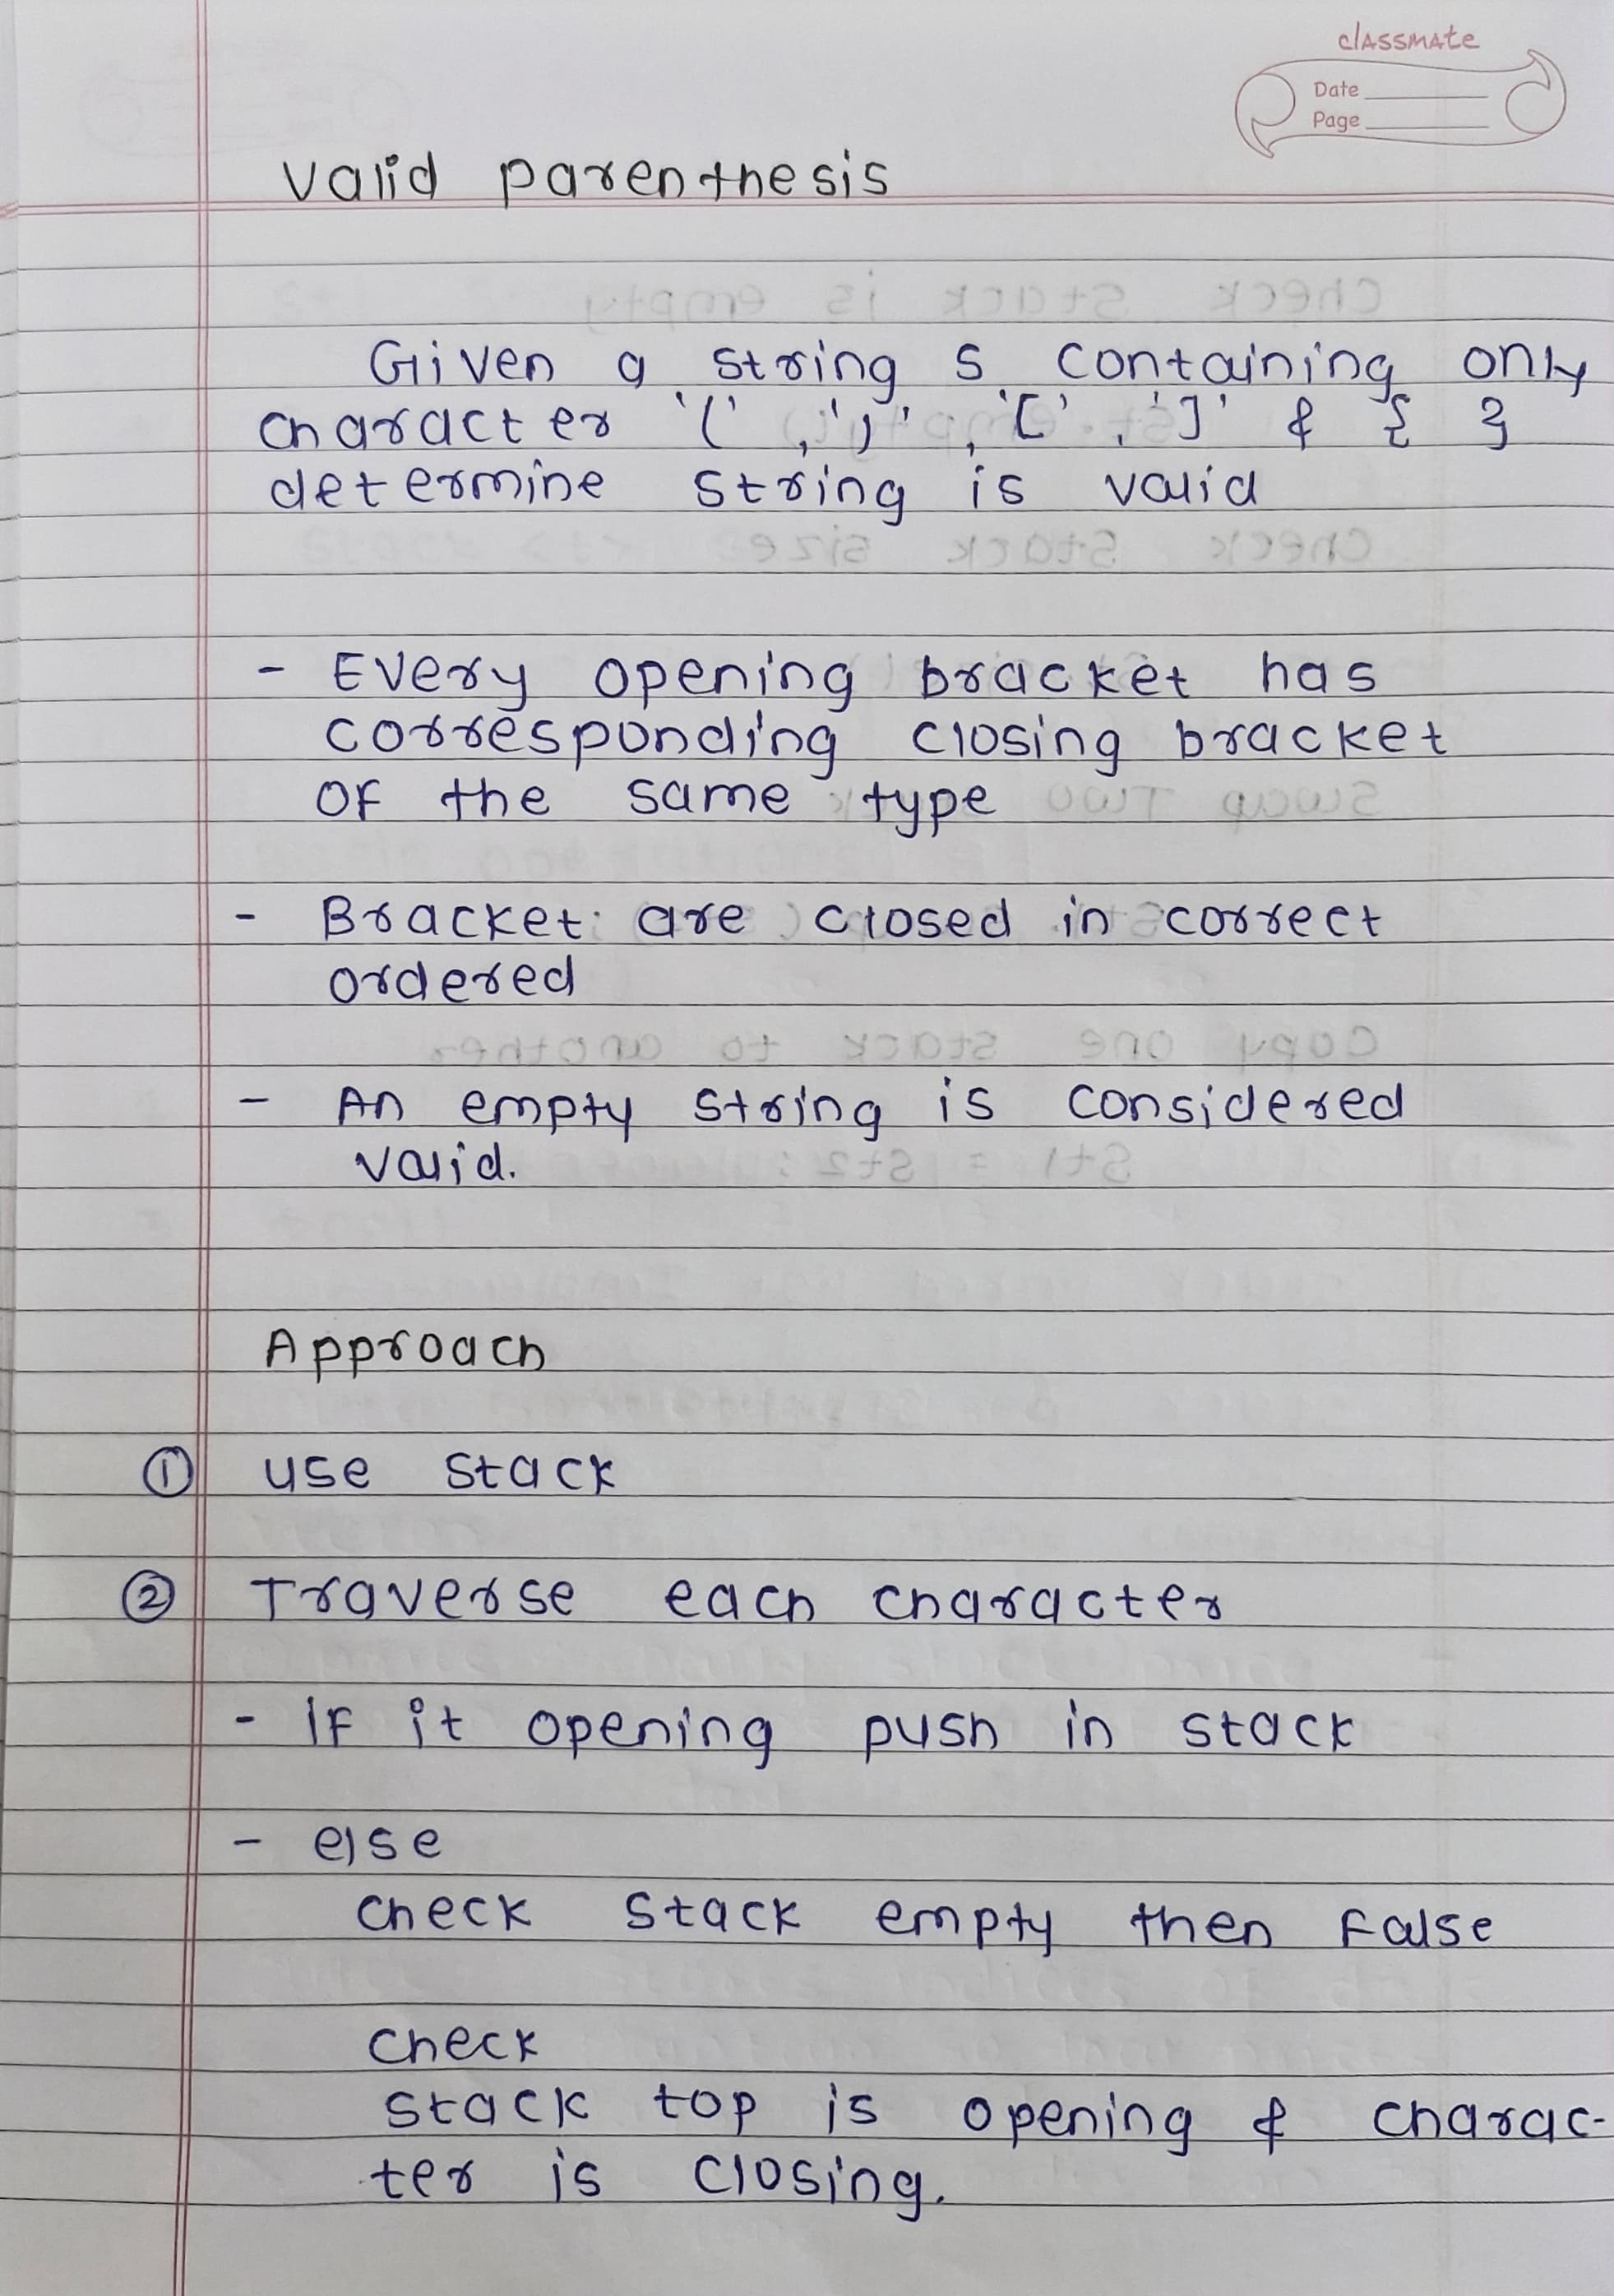 classmate
Date
Page
Valid parenthesis
Given a string s containing only
character '(' , ')' , '[' , ']' & { }
determine string is valid
- Every opening bracket has
corresponding closing bracket
of the same type
- Bracket are closed in correct
ordered
- An empty string is considered
valid.
Approach
① use stack
② Traverse each character
- If it opening push in stack
- else
check stack empty then False
check
stack top is opening & charac-
ter is closing.